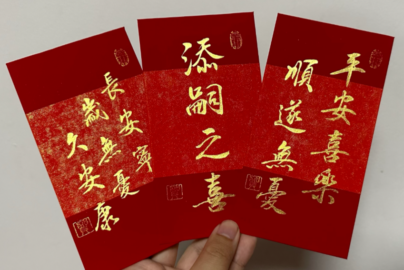 長安寧
歲無憂
久安康
添嗣之喜
平安喜樂
順遂無憂